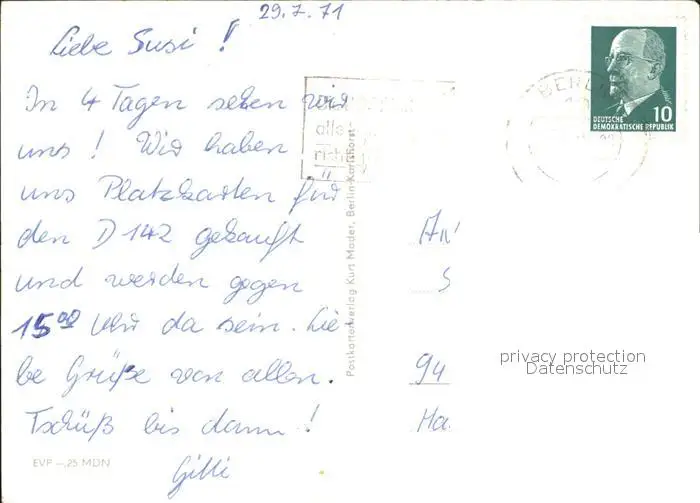 29.7.71
Liebe Susi!
In 4 Tagen sehen wir
uns! Wir haben
uns Platzkarten für
den D 142 gekauft
und werden gegen
15⁰⁰ Uhr da sein. Lie-
be Grüße von allen.
Tschüß bis dann!
Gitti
EVP -,25 MDN
Postkartenverlag Kurt Mader, Berlin-Karlshorst
BERLIN
10
DEUTSCHE
DEMOKRATISCHE REPUBLIK
An
S
94
Ha
privacy protection
Datenschutz